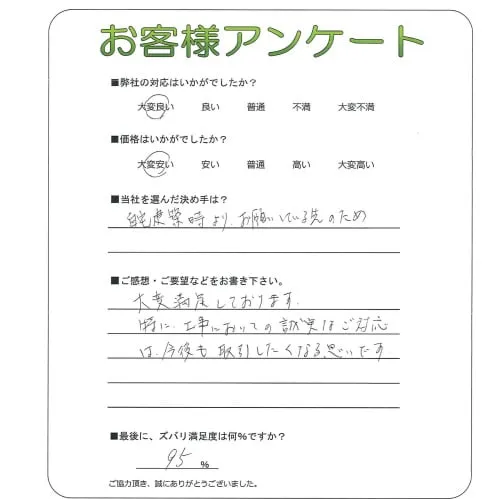 お客様アンケート
■弊社の対応はいかがでしたか？
大変良い 良い 普通 不満 大変不満
■価格はいかがでしたか？
大変安い 安い 普通 高い 大変高い
■当社を選んだ決め手は？
自宅建築時より、お願いしている先のため
■ご感想・ご要望などをお書き下さい。
大変満足しております.
特に、工事においての誠実なご対応
は、今後も取引したくなる思いです
■最後に、ズバリ満足度は何％ですか？
95 %
ご協力頂き、誠にありがとうございました。